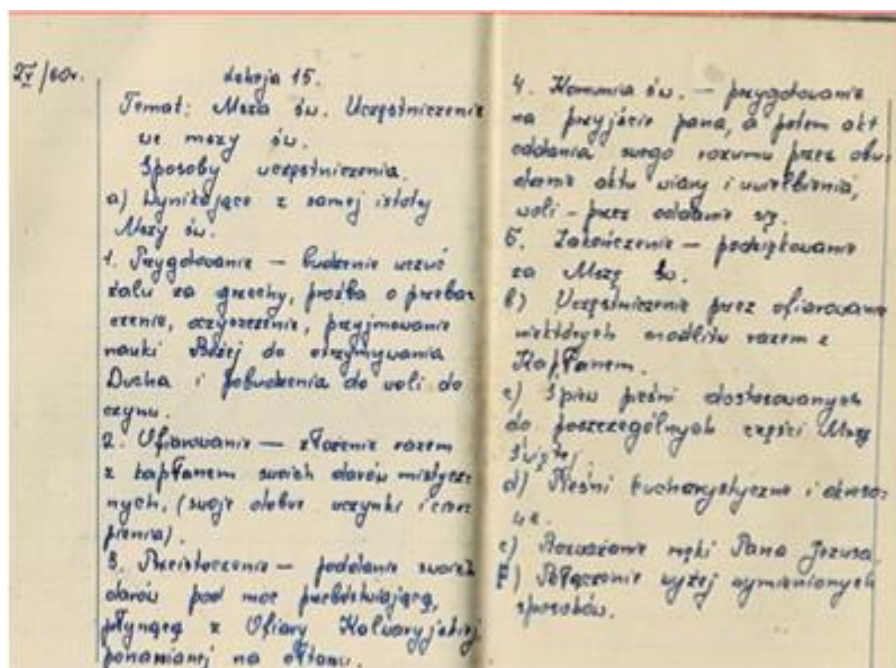 2 V/60r. Lekcja 15.
Temat: Msza św. Uczęstniczenie
we mszy św.
Sposoby uczęstniczenia.
a) Wynikające z samej istoty
Mszy św.
1. Przygotowanie — budzenie uczuć
żalu za grzechy, prośba o przeba
czenie, oczyszczenie, przyjmowanie
nauki Bożej do otrzymywania
Ducha i pobudzenia do woli do
czynu.
2. Ofiarowanie — złożenie razem
z kapłanem swoich darów mistycz
nych, (swoje dobre uczynki i cier
pienia).
3. Przeistoczenie — poddanie swoich
darów pod moc przebóstwiającą,
płynącą z Ofiary Kalwaryjskiej
ponawianej na ołtarzu.
4. Komunia św. — przygotowanie
na przyjście pana, a potem akt
oddania swego rozumu przez obu
dzenie aktu wiary i uwielbienia,
woli - przez oddanie się.
5. Zakończenie — podziękowanie
za Mszę św.
b) Uczęstniczenie przez ofiarowanie
niektórych modlitw razem z
Kapłanem.
c) Śpiew pieśni dostosowanych
do poszczególnych części Mszy
Świętej.
d) Pieśni Eucharystyczne i okreso
we.
e) Rozważanie męki Pana Jezusa.
F) Połączenie wyżej wymienionych
sposobów.